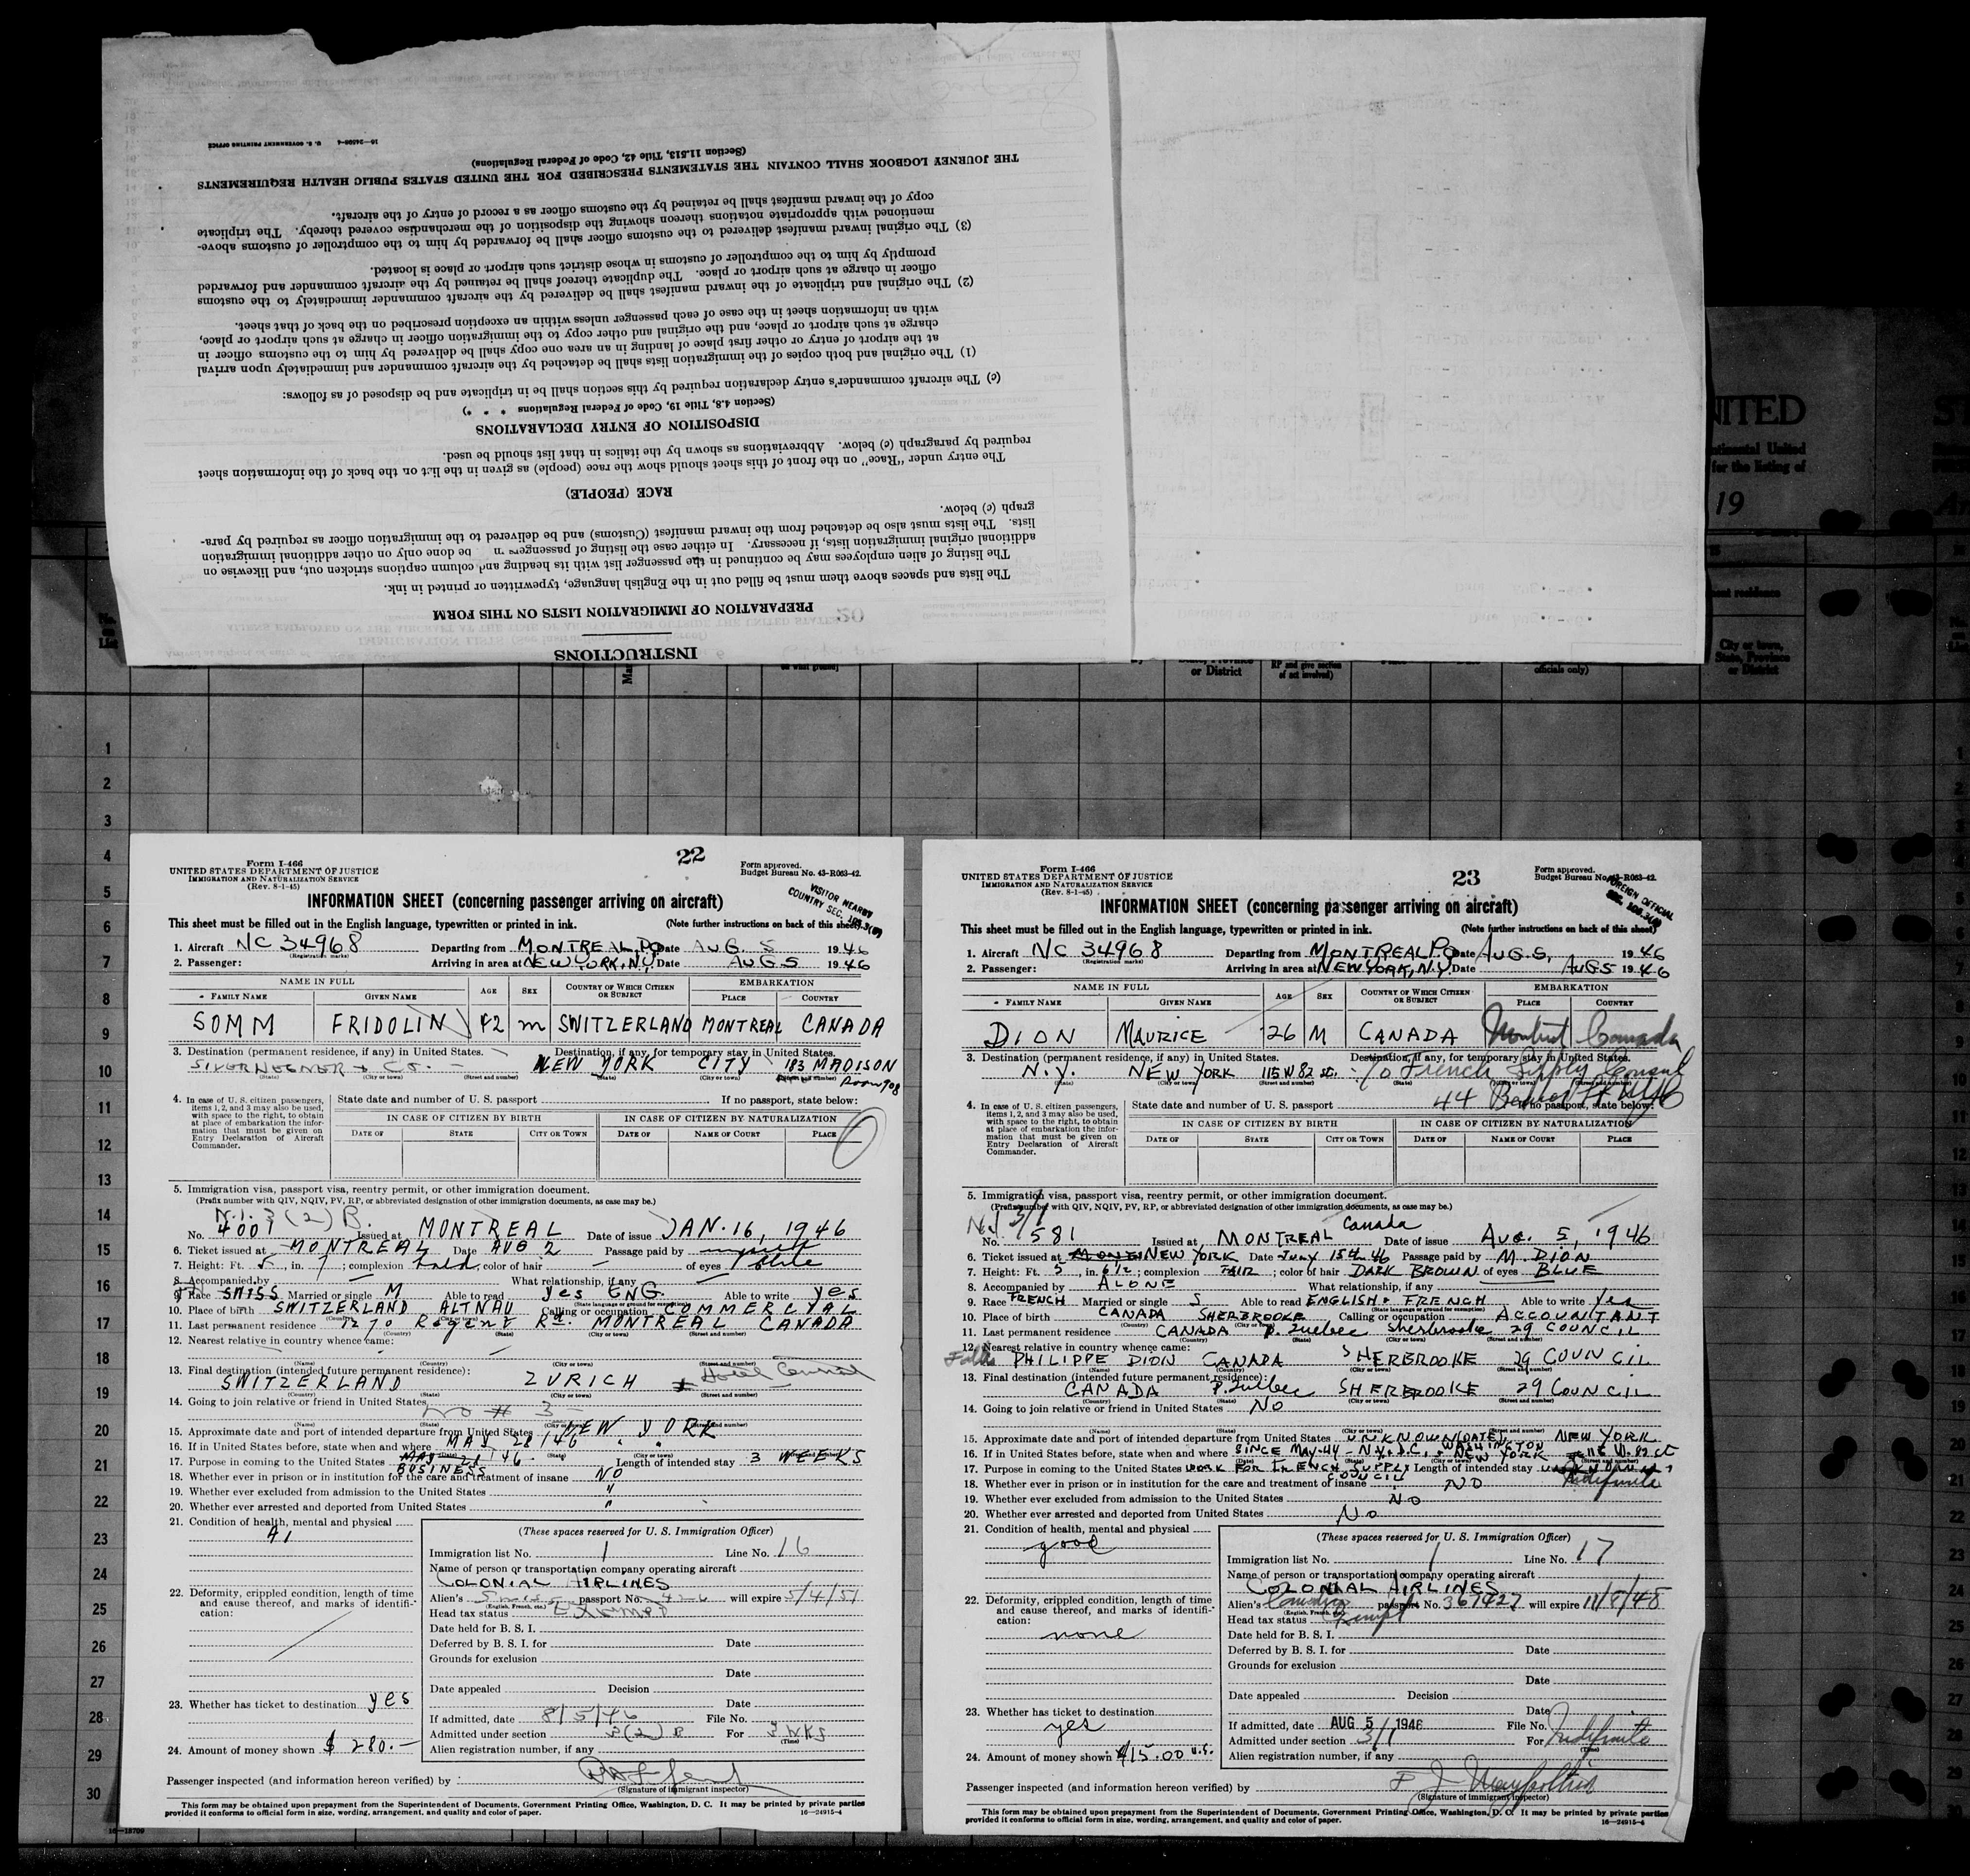 INSTRUCTIONS
PREPARATION OF IMMIGRATION LISTS ON THIS FORM
The lists and spaces above them must be filled out in the English language, typewritten or printed in ink.
The listing of alien employees may be continued in the passenger list with its heading and column captions stricken out, and likewise on
additional original immigration lists, if necessary. In either case the listing of passengers be done only on other additional immigration
lists. The lists must also be detached from the inward manifest (Customs) and be delivered to the immigration officer as required by para-
graph (c) below.
RACE (PEOPLE)
The entry under "Race" on the front of this sheet should show the race (people) as given in the list on the back of the information sheet
required by paragraph (c) below. Abbreviations as shown by the italics in that list should be used.
DISPOSITION OF ENTRY DECLARATIONS
(Section 4.8, Title 19, Code of Federal Regulations * * *)
(c) The aircraft commander's entry declaration required by this section shall be in triplicate and be disposed of as follows:
(1) The original and both copies of the immigration lists shall be detached by the aircraft commander and immediately upon arrival
at the airport of entry or other first place of landing in an area one copy shall be delivered by him to the customs officer in
charge at such airport or place, and the original and other copy to the immigration officer in charge at such airport or place,
with an information sheet in the case of each passenger unless within an exception prescribed on the back of that sheet.
(2) The original and triplicate of the inward manifest shall be delivered by the aircraft commander immediately to the customs
officer in charge at such airport or place. The duplicate thereof shall be retained by the aircraft commander and forwarded
promptly by him to the comptroller of customs in whose district such airport or place is located.
(3) The original inward manifest delivered to the customs officer shall be forwarded by him to the comptroller of customs above-
mentioned with appropriate notations thereon showing the disposition of the merchandise covered thereby. The triplicate
copy of the inward manifest shall be retained by the customs officer as a record of entry of the aircraft.
THE JOURNEY LOGBOOK SHALL CONTAIN THE STATEMENTS PRESCRIBED FOR THE UNITED STATES PUBLIC HEALTH REQUIREMENTS
(Section 11.513, Title 42, Code of Federal Regulations)
16—24598-4 U. S. GOVERNMENT PRINTING OFFICE
22
Form I-466
UNITED STATES DEPARTMENT OF JUSTICE
IMMIGRATION AND NATURALIZATION SERVICE
(Rev. 8-1-45)
Form approved.
Budget Bureau No. 43-R063-42.
VISITOR NEARBY
COUNTRY SEC.
INFORMATION SHEET (concerning passenger arriving on aircraft)
This sheet must be filled out in the English language, typewritten or printed in ink. (Note further instructions on back of this sheet)
1. Aircraft NC 34968 Departing from MONTREAL P.Q Date AUG. 5 1946
(Registration marks)
2. Passenger: Arriving in area at NEW YORK, N.Y. Date AUG 5 1946
NAME IN FULL AGE SEX COUNTRY OF WHICH CITIZEN OR SUBJECT EMBARKATION
FAMILY NAME GIVEN NAME PLACE COUNTRY
SOMM FRIDOLIN 42 m SWITZERLAND MONTREAL CANADA
3. Destination (permanent residence, if any) in United States. Destination, if any, for temporary stay in United States.
NEW YORK CITY 183 MADISON
Room 908
(State) (City or town) (Street and number) (State) (City or town) (Street and number)
4. In case of U. S. citizen passengers, items 1, 2, and 3 may also be used, with space to the right, to obtain at place of embarkation the information that must be given on Entry Declaration of Aircraft Commander.
State date and number of U. S. passport If no passport, state below:
IN CASE OF CITIZEN BY BIRTH IN CASE OF CITIZEN BY NATURALIZATION
DATE OF STATE CITY OR TOWN DATE OF NAME OF COURT PLACE
5. Immigration visa, passport visa, reentry permit, or other immigration document.
(Prefix number with QIV, NQIV, PV, RP, or abbreviated designation of other immigration documents, as case may be.)
N.I. 3(2)B.
No. 4001 Issued at MONTREAL Date of issue JAN. 16, 1946
6. Ticket issued at MONTREAL Date AUG 2 Passage paid by myself
7. Height: Ft. 5, in. 7; complexion ; color of hair — of eyes
8. Accompanied by — What relationship, if any —
9. Race SWISS Married or single M Able to read yes ENG. Able to write yes
(State language or ground for exemption)
10. Place of birth SWITZERLAND ALTNAU Calling or occupation COMMERCIAL
(Country) (City or town)
11. Last permanent residence 1270 Regent Rd. MONTREAL CANADA
(Country) (State) (City or town) (Street and number)
12. Nearest relative in country whence came:
(Name) (Country) (City or town) (Street and number)
13. Final destination (intended future permanent residence):
SWITZERLAND ZURICH Hotel Central
(Country) (State) (City or town) (Street and number)
14. Going to join relative or friend in United States No # 3
(Name) (State) (City or town) (Street and number)
15. Approximate date and port of intended departure from United States NEW YORK
16. If in United States before, state when and where MAY 28 146 " "
(Date) (State) (City or town) (Street and number)
17. Purpose in coming to the United States BUSINESS Length of intended stay 3 WEEKS
18. Whether ever in prison or in institution for the care and treatment of insane NO
19. Whether ever excluded from admission to the United States "
20. Whether ever arrested and deported from United States "
21. Condition of health, mental and physical
A1
22. Deformity, crippled condition, length of time and cause thereof, and marks of identification:
23. Whether has ticket to destination yes
24. Amount of money shown $ 280.—
(These spaces reserved for U. S. Immigration Officer)
Immigration list No. 1 Line No. 16
Name of person or transportation company operating aircraft
COLONIAL AIRLINES
Alien's Swiss passport No. will expire 5/4/51
(English, French, etc.)
Head tax status Exempt
Date held for B. S. I.
Deferred by B. S. I. for Date
Grounds for exclusion
Date
Date appealed Decision
Date
If admitted, date 8/5/46 File No.
Admitted under section 3(2)B For 3 WKS
(Time)
Alien registration number, if any
Passenger inspected (and information hereon verified) by
(Signature of immigrant inspector)
This form may be obtained upon prepayment from the Superintendent of Documents, Government Printing Office, Washington, D. C. It may be printed by private parties
provided it conforms to official form in size, wording, arrangement, and quality and color of paper. 16—24915-4
23
Form I-466
UNITED STATES DEPARTMENT OF JUSTICE
IMMIGRATION AND NATURALIZATION SERVICE
(Rev. 8-1-45)
Form approved.
Budget Bureau No. 43-R063-42.
FOREIGN OFFICIAL
INFORMATION SHEET (concerning passenger arriving on aircraft)
This sheet must be filled out in the English language, typewritten or printed in ink. (Note further instructions on back of this sheet)
1. Aircraft NC 34968 Departing from MONTREAL P.Q Date AUG 5, 1946
(Registration marks)
2. Passenger: Arriving in area at NEW YORK, N.Y. Date AUG 5 1946
NAME IN FULL AGE SEX COUNTRY OF WHICH CITIZEN OR SUBJECT EMBARKATION
FAMILY NAME GIVEN NAME PLACE COUNTRY
DION MAURICE 26 M CANADA Montreal Canada
3. Destination (permanent residence, if any) in United States. Destination, if any, for temporary stay in United States.
N.Y. NEW YORK 115 W 82 St. c/o French Supply Council
(State) (City or town) (Street and number) (State) (City or town) (Street and number)
44
4. In case of U. S. citizen passengers, items 1, 2, and 3 may also be used, with space to the right, to obtain at place of embarkation the information that must be given on Entry Declaration of Aircraft Commander.
State date and number of U. S. passport If no passport, state below:
IN CASE OF CITIZEN BY BIRTH IN CASE OF CITIZEN BY NATURALIZATION
DATE OF STATE CITY OR TOWN DATE OF NAME OF COURT PLACE
5. Immigration visa, passport visa, reentry permit, or other immigration document.
(Prefix number with QIV, NQIV, PV, RP, or abbreviated designation of other immigration documents, as case may be.)
N.I 3/1 Canada
No. 1581 Issued at MONTREAL Date of issue Aug. 5, 1946
6. Ticket issued at NEW YORK Date July 15th 46 Passage paid by M. DION
7. Height: Ft. 5, in. 6 1/2; complexion FAIR; color of hair DARK BROWN of eyes BLUE
8. Accompanied by ALONE What relationship, if any
9. Race FRENCH Married or single S Able to read ENGLISH + FRENCH Able to write Yes
(State language or ground for exemption)
10. Place of birth CANADA SHERBROOKE Calling or occupation ACCOUNTANT
(Country) (City or town)
11. Last permanent residence CANADA P. Quebec Sherbrooke 29 COUNCIL
(Country) (State) (City or town) (Street and number)
12. Nearest relative in country whence came:
Father PHILIPPE DION CANADA SHERBROOKE 29 COUNCIL
(Name) (Country) (City or town) (Street and number)
13. Final destination (intended future permanent residence):
CANADA P. Quebec SHERBROOKE 29 COUNCIL
(Country) (State) (City or town) (Street and number)
14. Going to join relative or friend in United States NO
(Name) (State) (City or town) (Street and number)
15. Approximate date and port of intended departure from United States UNKNOWN (DATE), NEW YORK
16. If in United States before, state when and where SINCE MAY-44 - WASHINGTON NEW YORK 115 W. 82 St
(Date) (State) (City or town) (Street and number)
17. Purpose in coming to the United States WORK FOR FRENCH SUPPLY COUNCIL Length of intended stay Indefinite
18. Whether ever in prison or in institution for the care and treatment of insane NO
19. Whether ever excluded from admission to the United States No
20. Whether ever arrested and deported from United States No
21. Condition of health, mental and physical
good
22. Deformity, crippled condition, length of time and cause thereof, and marks of identification:
none
23. Whether has ticket to destination
yes
24. Amount of money shown $15.00 U.S.
(These spaces reserved for U. S. Immigration Officer)
Immigration list No. 1 Line No. 17
Name of person or transportation company operating aircraft
COLONIAL AIRLINES
Alien's Canadian passport No. 367427 will expire 11/8/48
(English, French, etc.)
Head tax status Exempt
Date held for B. S. I.
Deferred by B. S. I. for Date
Grounds for exclusion
Date
Date appealed Decision
Date
If admitted, date AUG 5 1946 File No.
Admitted under section 3/1 For Indefinite
(Time)
Alien registration number, if any
Passenger inspected (and information hereon verified) by
(Signature of immigrant inspector)
This form may be obtained upon prepayment from the Superintendent of Documents, Government Printing Office, Washington, D. C. It may be printed by private parties
provided it conforms to official form in size, wording, arrangement, and quality and color of paper. 16—24915-4